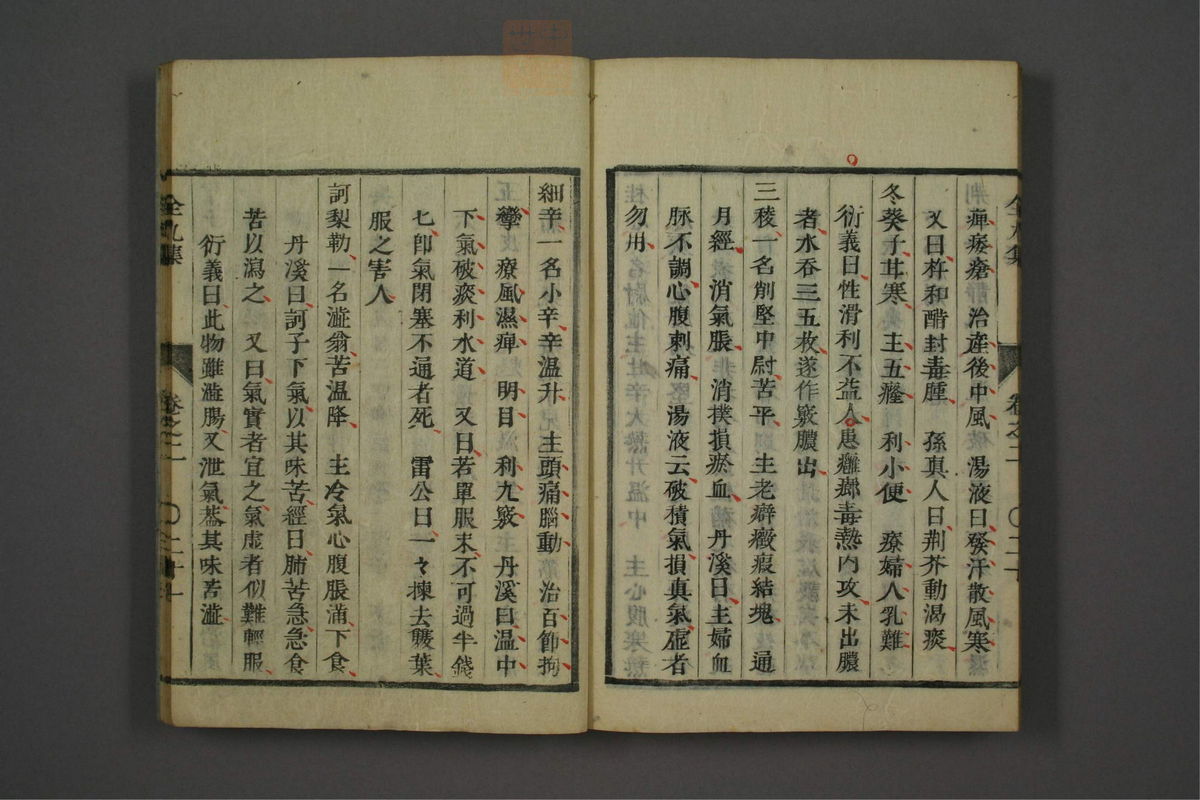 痺瘘瘡治產後中風 湯液曰發汗散風寒
又曰杵和醋封毒腫 孫真人曰荆芥動渴痰
冬葵子甘寒 主五癃 利小便 療婦人乳難
衍義曰性滑利不益人患癰癤毒熱內攻未出膿
者水吞三五枚遂作竅膿出
三稜一名削堅中尉苦平 主老癖癥瘕結塊 通
月經 消氣脹 消撲損瘀血 丹溪曰主婦血
脉不調心腹刺痛 湯液云破積氣損真氣虛者
勿用
細辛一名小辛辛温升 主頭痛腦動 治百節拘
攣 療風濕痺 明目 利九竅 丹溪曰温中
下氣破痰利水道 又曰若單服末不可過半錢
匕卽氣閉塞不通者死 雷公曰一々揀去雙葉
服之害人
訶梨勒一名澁翁苦温降 主冷氣心腹脹滿下食
丹溪曰訶子下氣以其味苦經曰肺苦急急食
苦以瀉之 又曰氣實者宜之氣虛者似難輕服
衍義曰此物難澁腸又泄氣蓋其味苦澁
全九集
卷之二
〇二十
全九集
卷之二
〇二十一